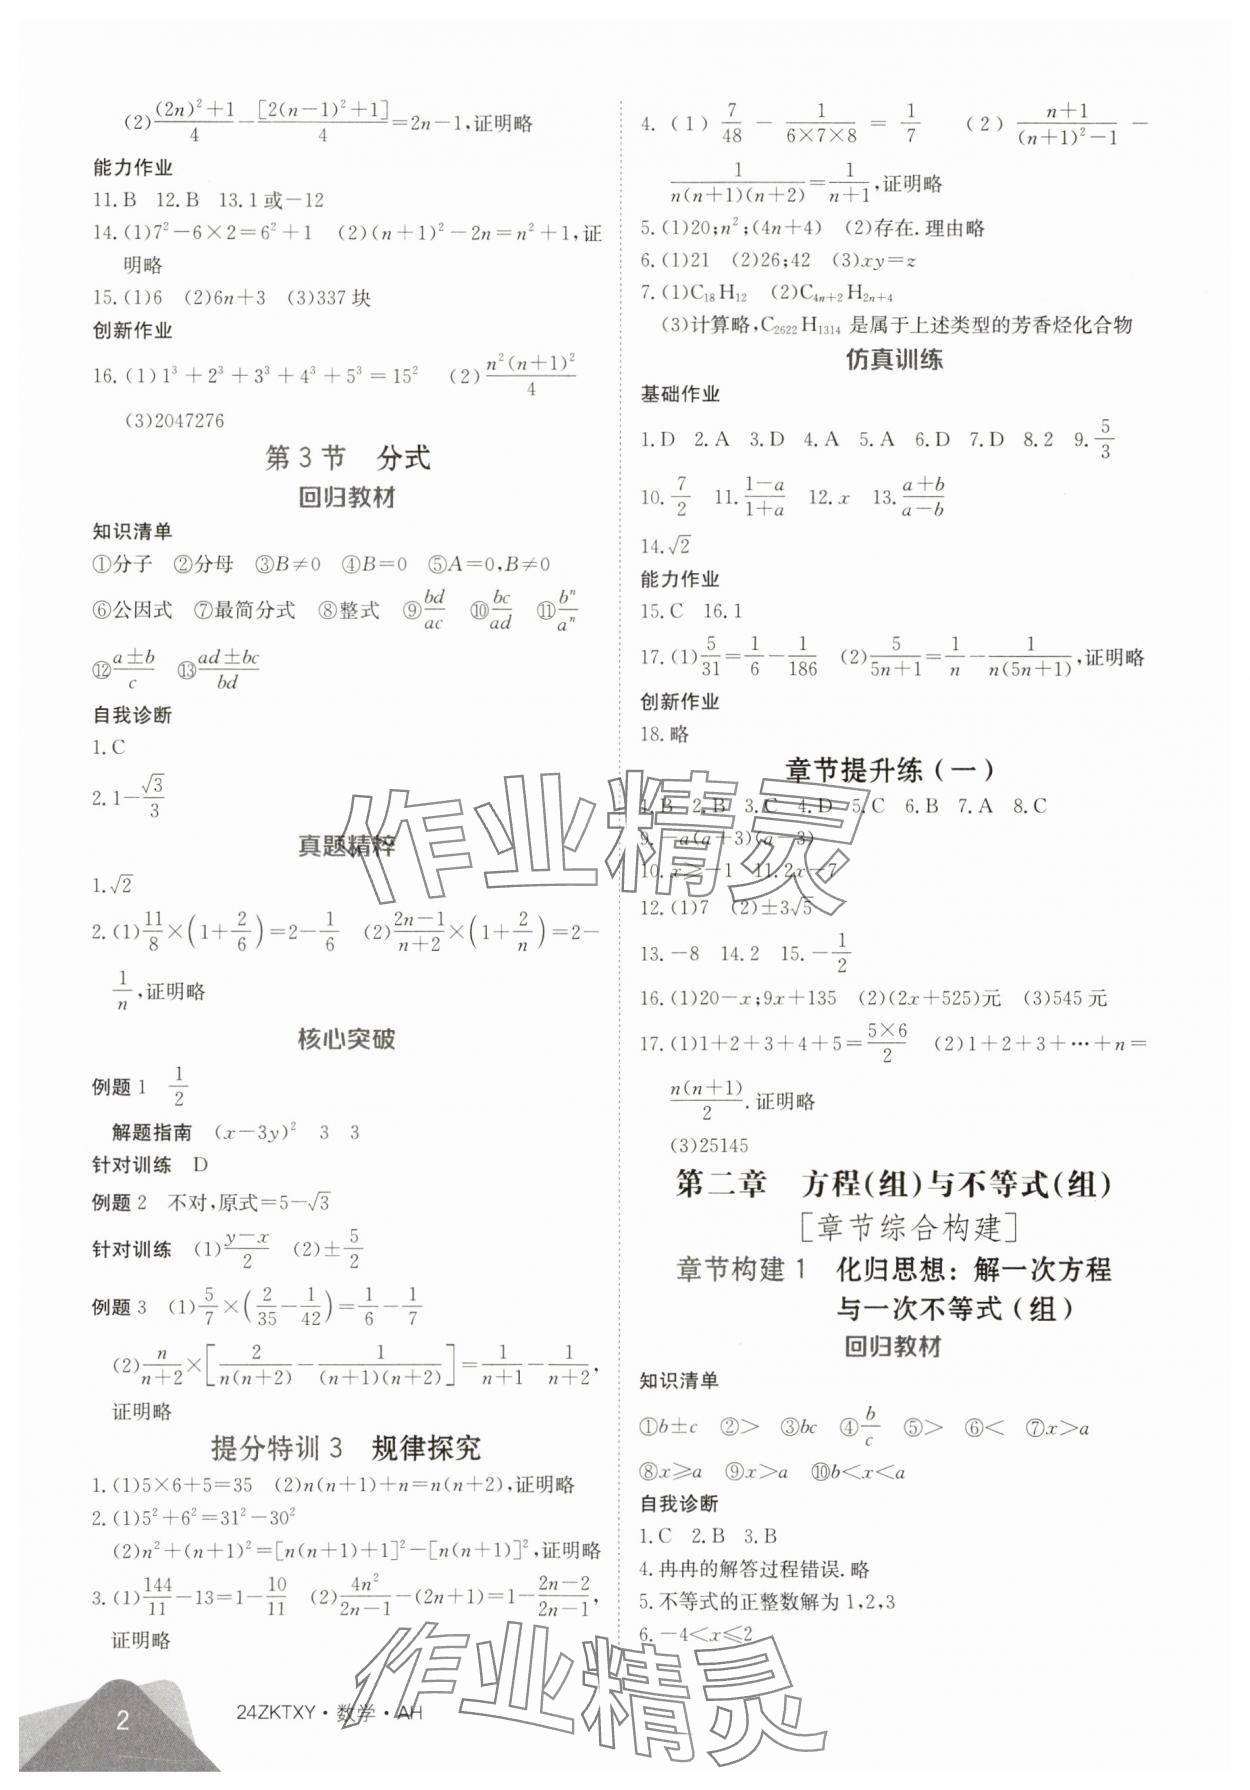 (2)\frac{(2n)²+1}{4}-\frac{[2(n-1)²+1]}{4}=2n-1,证明略
能力作业
11.B 12.B 13.1或-12
14.(1)7²-6×2=6²+1 (2)(n+1)²-2n=n²+1,证
明略
15.(1)6 (2)6n+3 (3)337块
创新作业
16.(1)1³+2³+3³+4³+5³=15² (2)\frac{n²(n+1)²}{4}
(3)2047276
第3节 分式
回归教材
知识清单
①分子 ②分母 ③B≠0 ④B=0 ⑤A=0,B≠0
⑥公因式 ⑦最简分式 ⑧整式 ⑨\frac{bd}{ac} ⑩\frac{bc}{ad} ⑪\frac{bⁿ}{aⁿ}
⑫\frac{a±b}{c} ⑬\frac{ad±bc}{bd}
自我诊断
1.C
2.1-\frac{√3}{3}
真题精粹
1.√2
2.(1)\frac{11}{8}×(1+\frac{2}{6})=2-\frac{1}{6} (2)\frac{2n-1}{n+2}×(1+\frac{2}{n})=2-
\frac{1}{n},证明略
核心突破
例题1 \frac{1}{2}
解题指南 (x-3y)² 3 3
针对训练 D
例题2 不对,原式=5-√3
针对训练 (1)\frac{y-x}{2} (2)±\frac{5}{2}
例题3 (1)\frac{5}{7}×(\frac{2}{35}-\frac{1}{42})=\frac{1}{6}-\frac{1}{7}
(2)\frac{n}{n+2}×[\frac{2}{n(n+2)}-\frac{1}{(n+1)(n+2)}]=\frac{1}{n+1}-\frac{1}{n+2},
证明略
提分特训3 规律探究
1.(1)5×6+5=35 (2)n(n+1)+n=n(n+2),证明略
2.(1)5²+6²=31²-30²
(2)n²+(n+1)²=[n(n+1)+1]²-[n(n+1)]²,证明略
3.(1)\frac{144}{11}-13=1-\frac{10}{11} (2)\frac{4n²}{2n-1}-(2n+1)=1-\frac{2n-2}{2n-1},
证明略
4.(1)\frac{7}{48}-\frac{1}{6×7×8}=\frac{1}{7} (2)\frac{n+1}{(n+1)²-1}-
\frac{1}{n(n+1)(n+2)}=\frac{1}{n+1},证明略
5.(1)20;n²;(4n+4) (2)存在.理由略
6.(1)21 (2)26;42 (3)xy=z
7.(1)C₁₈H₁₂ (2)C₄ₙ₊₂H₂ₙ₊₄
(3)计算略,C₂₆₂₂H₁₃₁₄是属于上述类型的芳香烃化合物
仿真训练
基础作业
1.D 2.A 3.D 4.A 5.A 6.D 7.D 8.2 9.\frac{5}{3}
10.\frac{7}{2} 11.\frac{1-a}{1+a} 12.x 13.\frac{a+b}{a-b}
14.√2
能力作业
15.C 16.1
17.(1)\frac{5}{31}=\frac{1}{6}-\frac{1}{186} (2)\frac{5}{5n+1}=\frac{1}{n}-\frac{1}{n(5n+1)},证明略
创新作业
18.略
章节提升练(一)
1.B 2.B 3.C 4.D 5.C 6.B 7.A 8.C
9.-a(a+3)(a-3)
10.x≥-1 11.2x-7
12.(1)7 (2)±3√5
13.-8 14.2 15.-\frac{1}{2}
16.(1)20-x;9x+135 (2)(2x+525)元 (3)545元
17.(1)1+2+3+4+5=\frac{5×6}{2} (2)1+2+3+…+n=
\frac{n(n+1)}{2}.证明略
(3)25145
第二章 方程(组)与不等式(组)
[章节综合构建]
章节构建1 化归思想：解一次方程
与一次不等式(组)
回归教材
知识清单
①b±c ②> ③bc ④\frac{b}{c} ⑤> ⑥< ⑦x>a
⑧x≥a ⑨x>a ⑩b<x<a
自我诊断
1.C 2.B 3.B
4.冉冉的解答过程错误.略
5.不等式的正整数解为1,2,3
6.-4<x≤2
作业精灵
作业精灵
2
24ZKTXY·数学·AH